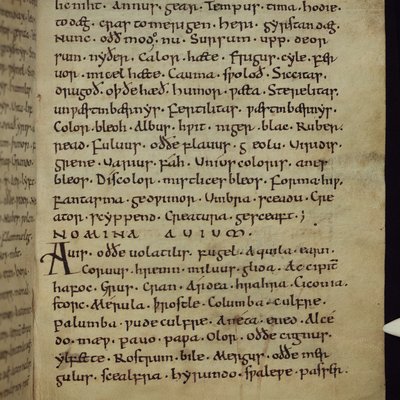 lic niht · Annus · gear · Tempus · tima · hodie ·
to dæg · cras · to merigen · heri · gyrstan dæg ·
Nunc · oððe modo · nu · Sursum · upp · deor
sum · nyðer · Calor · hæte · Frigus · cyle · Fer
vor · micel hæte · Cauma · sƿoloð · Siccitas ·
drugoð · oþðe hæð · humor · ƿæta · Sterelitas ·
unƿæstmbærnyss · Fertilitas · ƿæstmbærnyss ·
Color · bleoh · Albus · hƿit · niger · blac · Ruber ·
read · Fuluus · oððe flauus · geolu · Viridis ·
grene · Varius · fah · Unius coloris · anes
bleos · Discolor · mistlices bleos · Forma · hiƿ ·
Fantasma · gedƿimor · Umbra · sceadu · Cre
ator · scyppend · Creatura · gesceaft ;
NOMINA AVIUM ·
Auis · oððe uolatilis · fugel · Aquila · earn ·
Coruus · hremn · miluus · glida · Accipiter
hafoc · Grus · cran · Ardea · hragra · Ciconia ·
storc · Merula · þrostle · Columba · culfre ·
palumba · ƿudeculfre · Aneta · ened · Alce
do · mæƿ · pauo · paƿa · Olor · oððe cignus ·
ylfette · Rostrum · bile · Mergus · oððe mer
gulus · scealfra · hyrundo · sƿaleƿe · passer ·